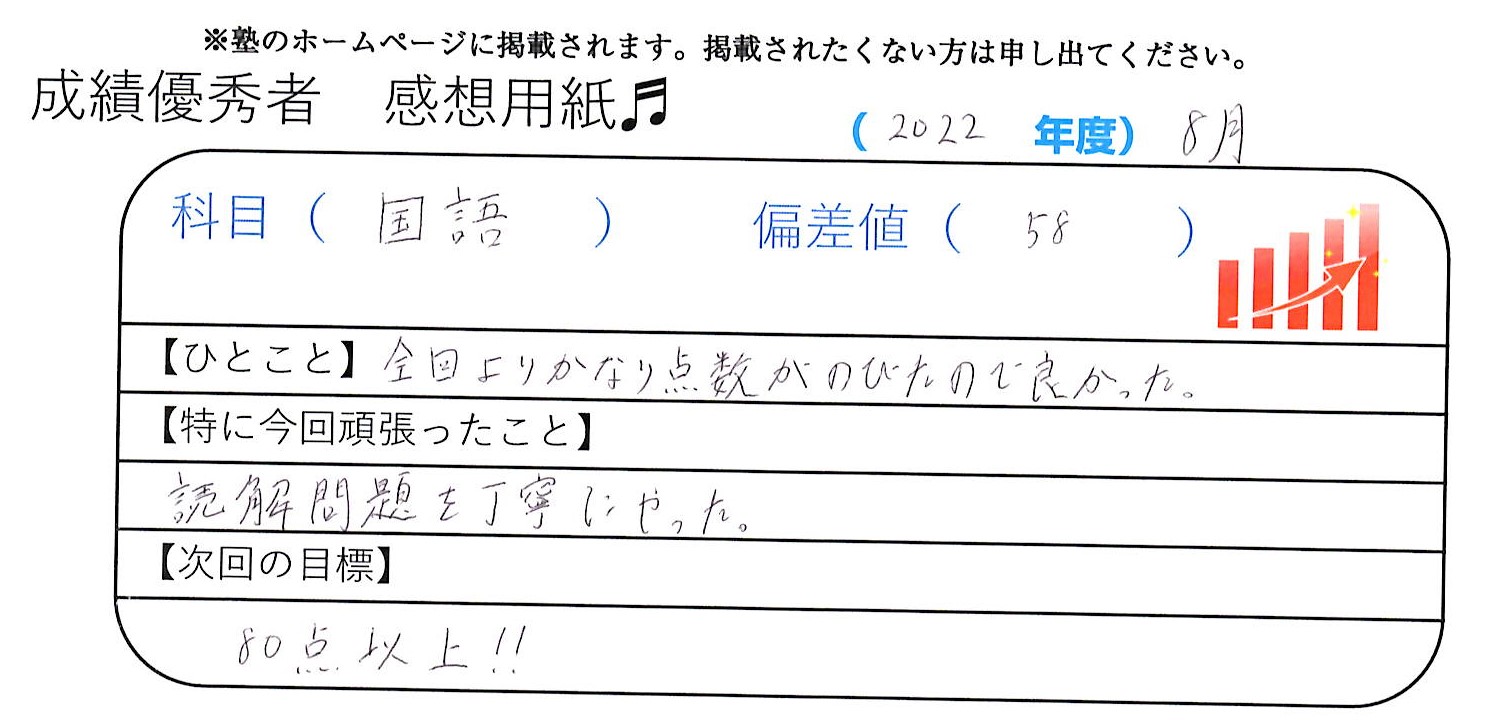 ※塾のホームページに掲載されます。掲載されたくない方は申し出てください。
成績優秀者　感想用紙♬
（2022　年度）8月
科目（　国語　）　偏差値（　58　）
【ひとこと】全回よりかなり点数がのびたので良かった。
【特に今回頑張ったこと】
読解問題を丁寧にやった。
【次回の目標】
80点以上!!